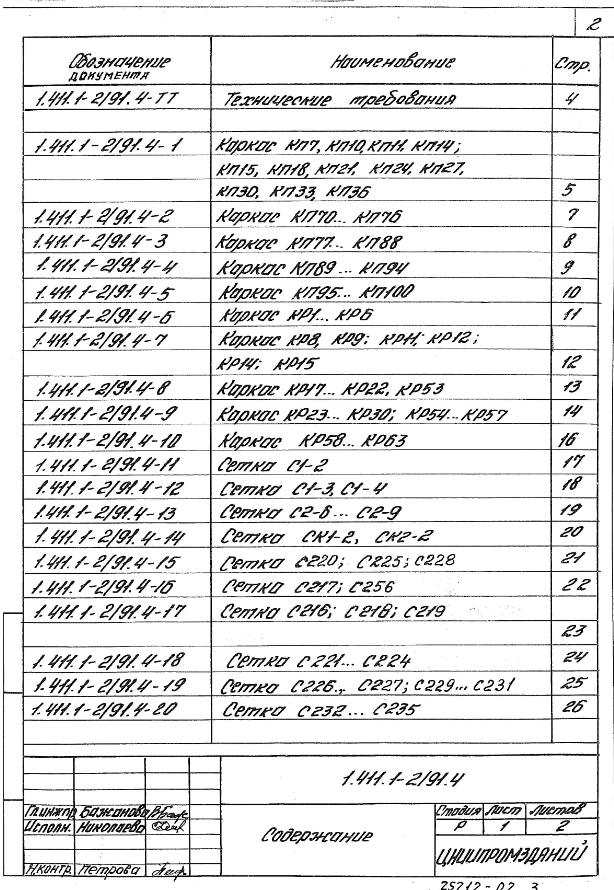 2
Обозначение документа Наименование Стр.
1.411.1-2/91.4-ТТ Технические требования 4
1.411.1-2/91.4-1 Каркас КП7, КП10, КП11, КП14;
КП15, КП18, КП21, КП24, КП27,
КП30, КП33, КП36 5
1.411.1-2/91.4-2 Каркас КП70... КП76 7
1.411.1-2/91.4-3 Каркас КП77... КП88 8
1.411.1-2/91.4-4 Каркас КП89... КП94 9
1.411.1-2/91.4-5 Каркас КП95... КП100 10
1.411.1-2/91.4-6 Каркас КР1... КР6 11
1.411.1-2/91.4-7 Каркас КР8, КР9; КР11; КР12;
КР14; КР15 12
1.411.1-2/91.4-8 Каркас КР17... КР22, КР53 13
1.411.1-2/91.4-9 Каркас КР23... КР30; КР54...КР57 14
1.411.1-2/91.4-10 Каркас КР58... КР63 16
1.411.1-2/91.4-11 Сетка С1-2 17
1.411.1-2/91.4-12 Сетка С1-3, С1-4 18
1.411.1-2/91.4-13 Сетка С2-6... С2-9 19
1.411.1-2/91.4-14 Сетка СК1-2, СК2-2 20
1.411.1-2/91.4-15 Сетка С220; С225; С228 21
1.411.1-2/91.4-16 Сетка С217; С256 22
1.411.1-2/91.4-17 Сетка С216; С218; С219
23
1.411.1-2/91.4-18 Сетка С221... С224 24
1.411.1-2/91.4-19 Сетка С226.., С227; С229...С231 25
1.411.1-2/91.4-20 Сетка С232... С235 26
1.411.1-2/91.4
Гл.инж.пр Бажанова
Исполн. Николаева
Н.контр. Петрова
Содержание
Стадия Лист Листов
Р 1 2
ЦНИИПРОМЗДАНИЙ
25212-02 3